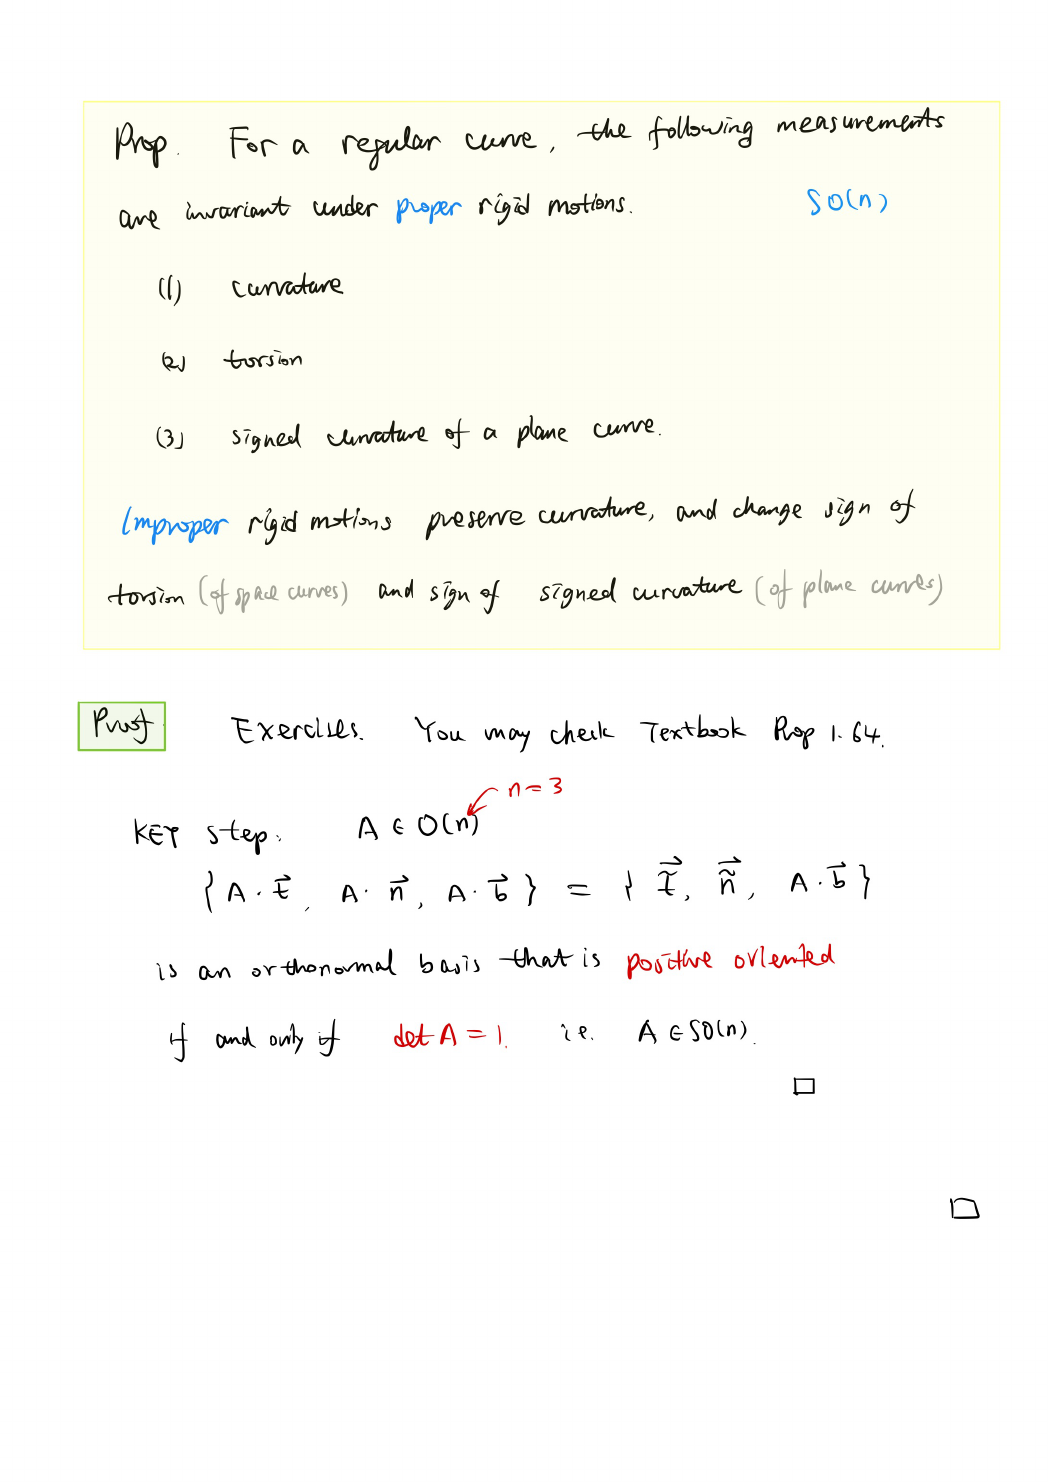 Prop. For a regular curve, the following measurements
are invariant under proper rigid motions. SO(n)
(1) curvature
(2) torsion
(3) signed curvature of a plane curve.
Improper rigid motions preserve curvature, and change sign of
torsion (of space curves) and sign of signed curvature (of plane curves)
Proof. Exercises. You may check Textbook Prop 1.64.
n=3
KEY step: A ∈ O(n)
{ A·t⃗, A·n⃗, A·b⃗ } = { t̃⃗, ñ⃗, A·b⃗ }
is an orthonormal basis that is positive oriented
if and only if det A = 1. i.e. A ∈ SO(n).
□
□